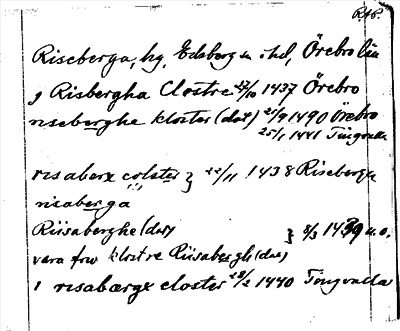 R.S.P.
Riseberga, hg, Edsberg sn o hd, Örebro län
j Risbergha Clostre 27/10 1437 Örebro
riseberghe kloster (dat) 21/9 1490 Örebro
25/1 1441 Tingvalla
risaberx colster } 22/11 1438 Riseberga
risaberga
Riisaberghe (dat) } 8/3 1439 u.o.
vara frw klostre Riisabergh (dat)
i risabærgx closter 28/2 1440 Tingvalla